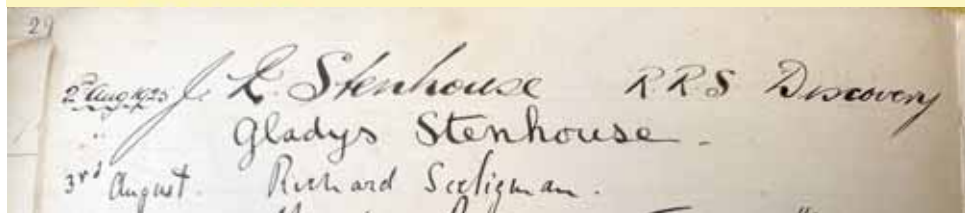 29
2nd Aug 1925 J. R. Stenhouse RRS Discovery
" Gladys Stenhouse.
3rd August. Richard Seligman.